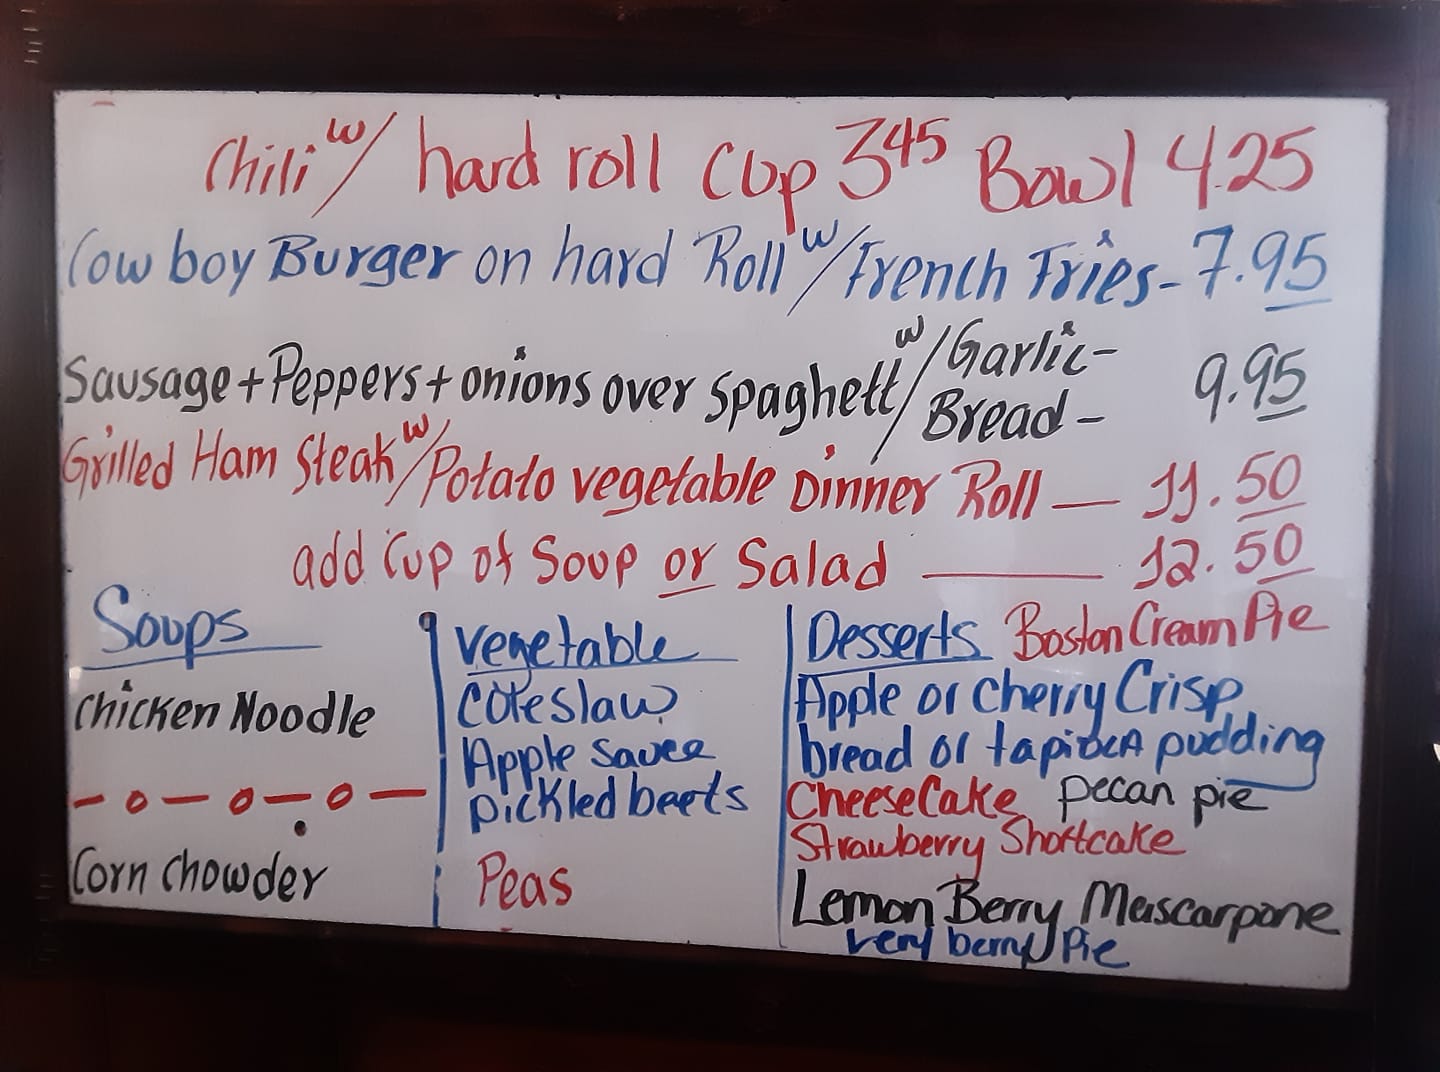 Chili w/ hard roll Cup 3.45 Bowl 4.25
Cowboy Burger on hard Roll w/ French Fries - 7.95
Sausage + Peppers + onions over spaghetti w/ Garlic - Bread - 9.95
Grilled Ham Steak w/ Potato vegetable Dinner Roll — 11.50
add Cup of Soup or Salad — 12.50
Soups
Chicken Noodle
Corn Chowder
Vegetable
Coleslaw
Apple Sauce
pickled beets
Peas
Desserts Boston Cream Pie
Apple or Cherry Crisp
bread or tapioca pudding
CheeseCake pecan pie
Strawberry Shortcake
Lemon Berry Mascarpone
very berry Pie